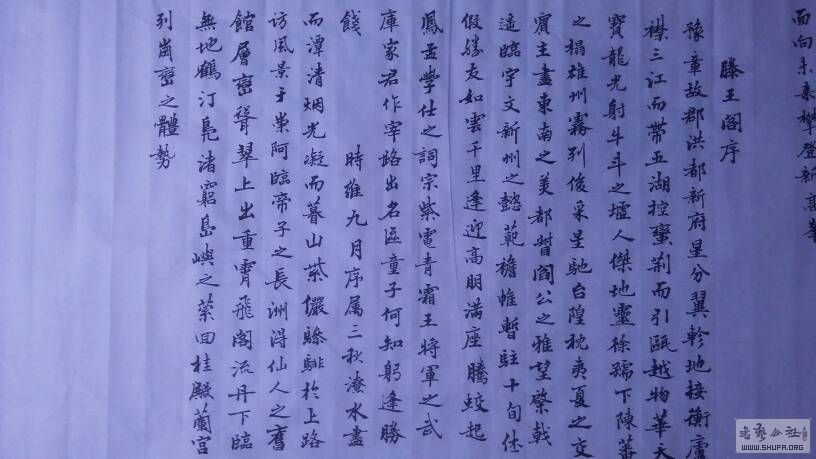 面向未来攀登新高峰
滕王阁序
豫章故郡洪都新府星分翼軫地接衡廬
襟三江而帶五湖控蠻荆而引甌越物華天
寶龍光射牛斗之墟人傑地靈徐孺下陳蕃
之榻雄州霧列俊采星馳台隍枕夷夏之交
賓主盡東南之美都督閻公之雅望棨戟
遥臨宇文新州之懿範襜帷暫駐十旬休
假勝友如雲千里逢迎高朋满座騰蛟起
鳳孟學仕之詞宗紫電青霜王將軍之武
庫家君作宰路出名區童子何知躬逢勝
餞 時維九月序属三秋潦水盡
而潭清烟光凝而暮山紫儼驂騑於上路
访風景于崇阿臨帝子之長洲得仙人之舊
館層巒聳翠上出重霄飛閣流丹下臨
無地鶴汀鳧渚窮島嶼之縈回桂殿蘭宫
列崗巒之體勢
WWW.SHUFA.ORG